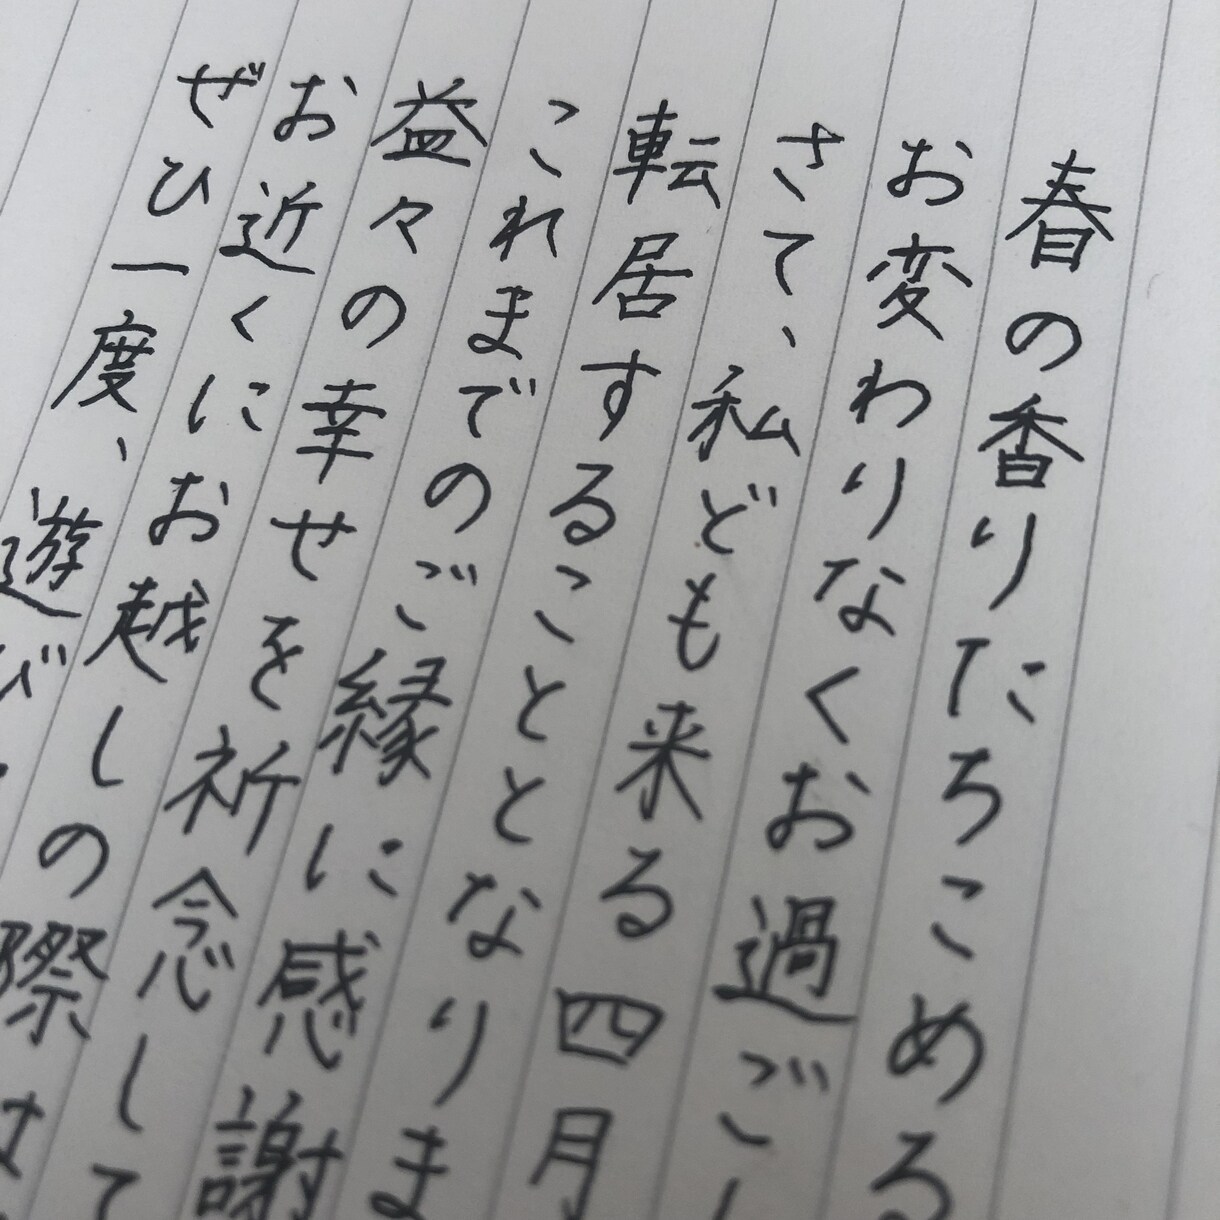 春の香りたちこめる
お変わりなくお過ごし
さて、私ども来る四月
転居することとなりま
これまでのご縁に感謝
益々の幸せを祈念して
お近くにお越しの際は
ぜひ一度、遊び